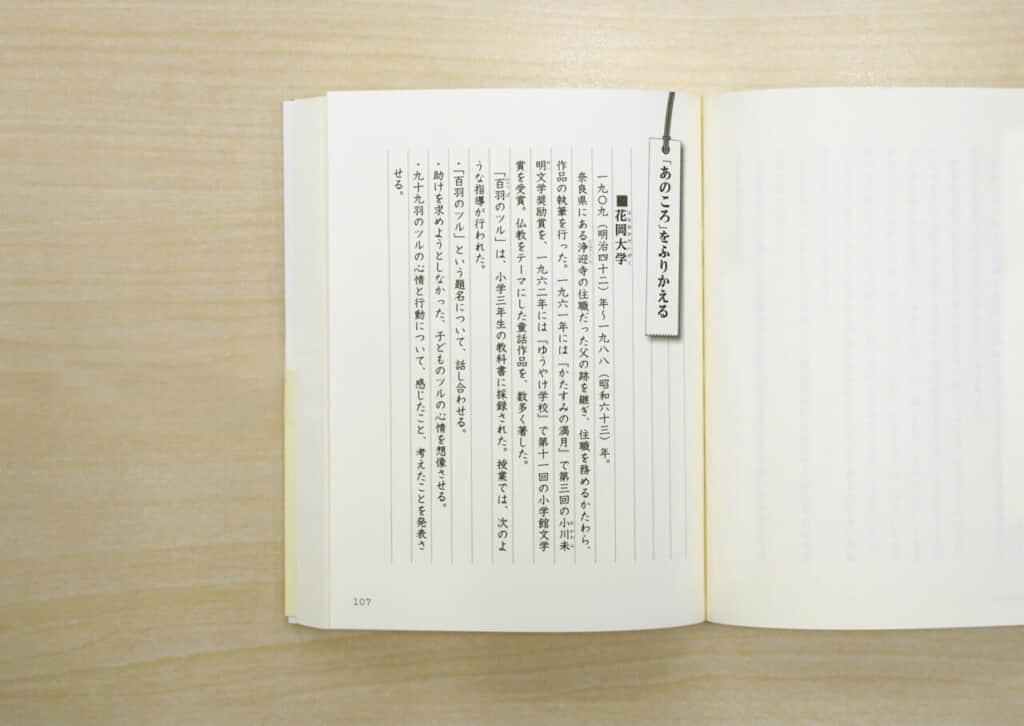 「あのころ」をふりかえる
■花岡大学
一九〇九（明治四十二）年〜一九八八（昭和六十三）年。
奈良県にある浄迎寺の住職だった父の跡を継ぎ、住職を務めるかたわら、
作品の執筆を行った。一九六一年には『かたすみの満月』で第三回の小川未
明文学奨励賞を、一九六二年には『ゆうやけ学校』で第十一回の小学館文学
賞を受賞。仏教をテーマにした童話作品を、数多く著した。
「百羽のツル」は、小学三年生の教科書に採録された。授業では、次のよ
うな指導が行われた。
・「百羽のツル」という題名について、話し合わせる。
・助けを求めようとしなかった、子どものツルの心情を想像させる。
・九十九羽のツルの心情と行動について、感じたこと、考えたことを発表さ
せる。
107